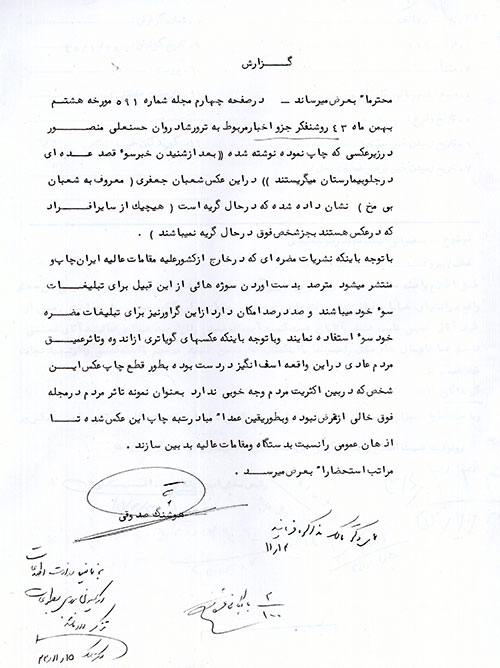 گـــزارش
محترما" بعرض میرساند ــ درصفحه چهارم مجله شماره ۵۹۱ مورخه هشتم
بهمن ماه ۴۳ روشنفکر جزو اخبار مربوط به ترور شادروان حسنعلی منصور
درزیرعکسی که چاپ نموده نوشته شده (( بعد ازشنیدن خبرسو ٔ قصد عده ای
درجلوبیمارستان میگریستند )) دراین عکس شعبان جعفری ( معروف به شعبان
بی مخ ) نشان داده شده که درحال گریه است ( هیچیک از سایرافراد
که درعکس هستند بجزشخص فوق درحال گریه نمیباشند ) .
باتوجه باینکه نشریات مضره ای که درخارج ازکشورعلیه مقامات عالیه ایران چاپ و
منتشر میشود مترصد بدست اوردن سوژه هائی از این قبیل برای تبلیغات
سو ٔ خود میباشند و صددرصد امکان دارد ازاین گراورنیز برای تبلیغات مضره
خود سو ٔ استفاده نمایند وباتوجه باینکه عکسهای گویاتری ازاندوه وتاثرعمیق
مردم عادی دراین واقعه اسف انگیز دردست بوده بطور قطع چاپ عکس این
شخص که دربین اکثریت مردم وجه خوبی ندارد بعنوان نمونه تاثر مردم درمجله
فوق خالی ازغرض نبوده وبطوریقین عمدا" مبادرت به چاپ این عکس شده تا
اذهان عمومی رانسبت بدستگاه ومقامات عالیه بدبین سازند .
مراتب استحضارا" بعرض میرسد .
هوشنگ صدوقی
مذاکره فرمائید
۱۱/۱۲